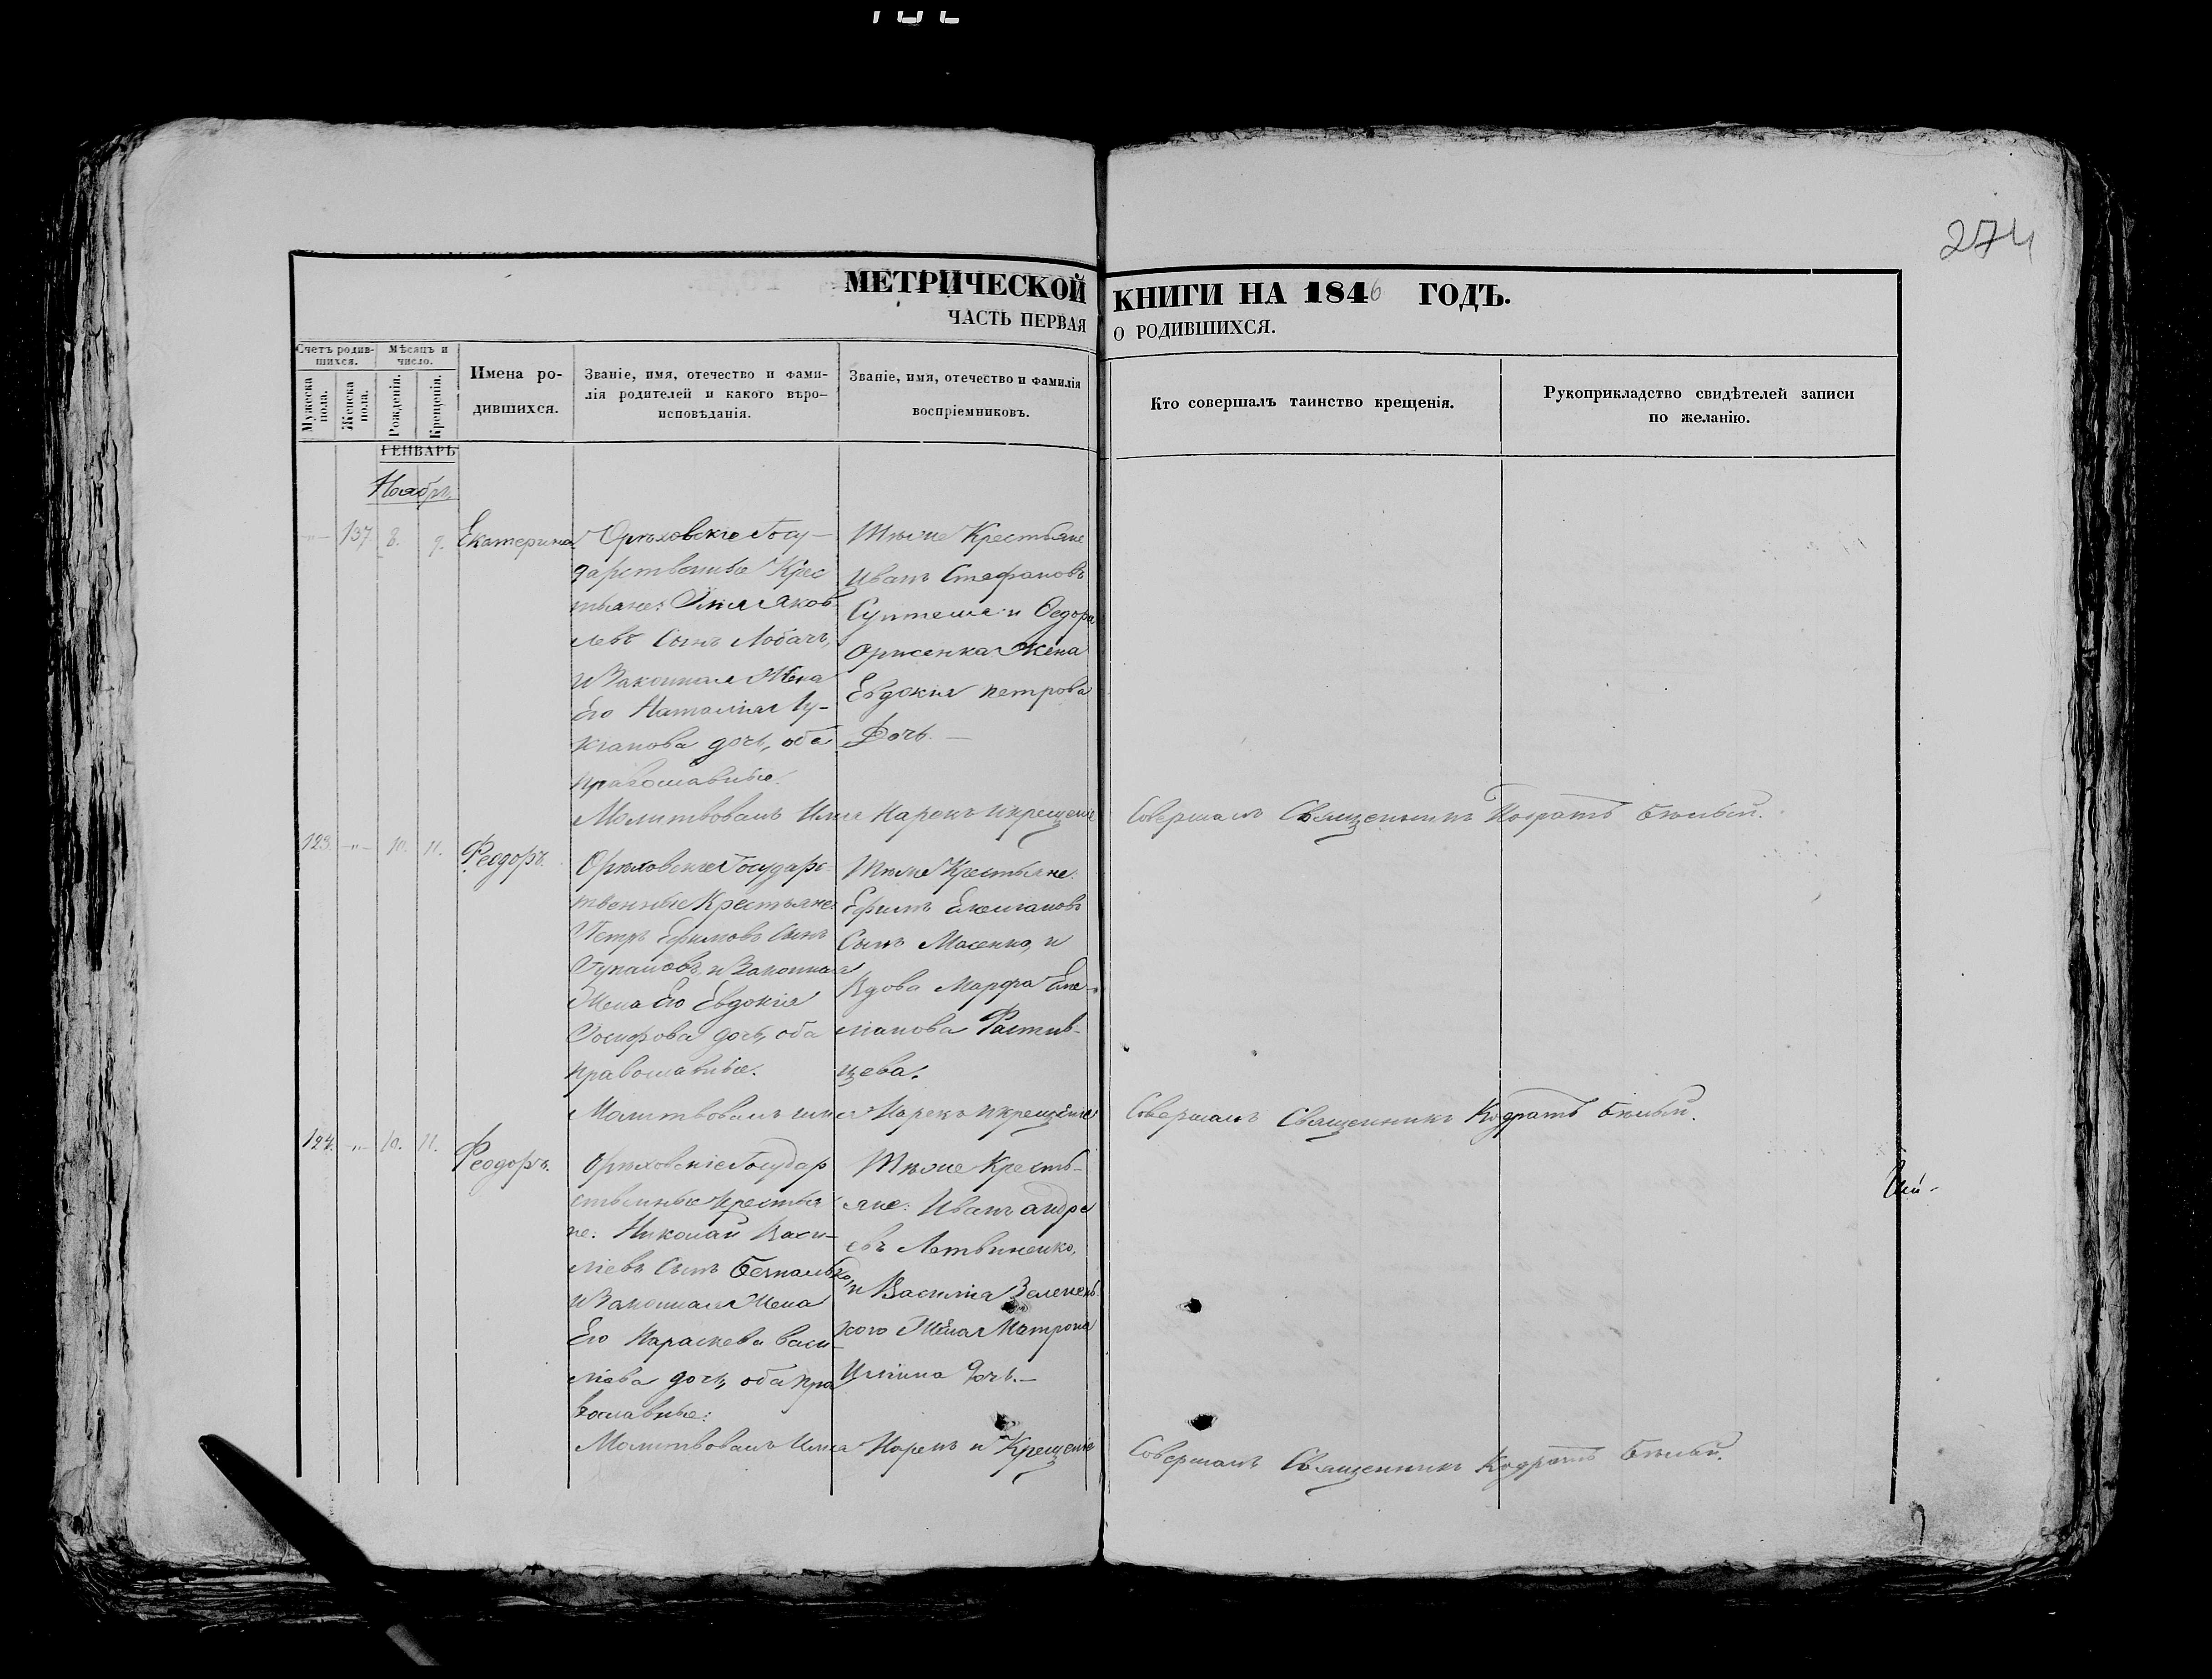 274
МЕТРИЧЕСКОЙ КНИГИ НА 1846 ГОДЪ.
ЧАСТЬ ПЕРВАЯ О РОДИВШИХСЯ.
Счетъ родившихся.
Мужеска пола.
Женска пола.
Мѣсяцъ и число.
Рожденія.
Крещенія.
Имена родившихся.
Званіе, имя, отечество и фамилія родителей и какого вѣроисповѣданія.
Званіе, имя, отечество и фамилія воспріемниковъ.
Кто совершалъ таинство крещенія.
Рукоприкладство свидѣтелей записи по желанію.
ГЕНВАРЬ
Ноябрь
137. 8. 9. Екатерина
Орѣховскіе Госу-
дарственные Крес
тьяне: Яков
левъ Сынъ Лобачъ,
и Законная Жена
Его Наталія Лу-
кіанова дочь, оба
православные.
Тѣже Крестьяне
Иванъ Стефановъ
и Ѳедора
Жена
Евдокія петрова
Дочь. —
Молитвовалъ Имя Нарекъ и крещеніе Совершалъ Священникъ Кодратъ Бѣлый.
123. 10. 11. Феодоръ.
Орѣховскіе Государс
твенные Крестьяне:
Петръ Ефимовъ Сынъ
и Законная
Жена Его Евдокія
Іосифова дочь, оба
православные.
Тѣже Крестьяне.
Ефимъ Емеліановъ
Сынъ и
Вдова Марфа Еме-
ліанова
цева.
Молитвовалъ имя Нарекъ и крещеніе Совершалъ Священникъ Кодратъ Бѣлый.
124. 10. 11. Феодоръ.
Орѣховскіе Государ
ственные Крестья
не: Николай Васи-
ліевъ Сынъ
и Законная Жена
Его Параскева Васи-
ліева дочь, оба пра
вославные:
Тѣже Кресть-
яне: Иванъ андре
евъ Летвиненко,
и Василія Зеленсь
кого Жена Матрона
Иліина дочь. —
Молитвовалъ Имя Нарекъ и Крещеніе Совершалъ Священникъ Кодратъ Бѣлый.